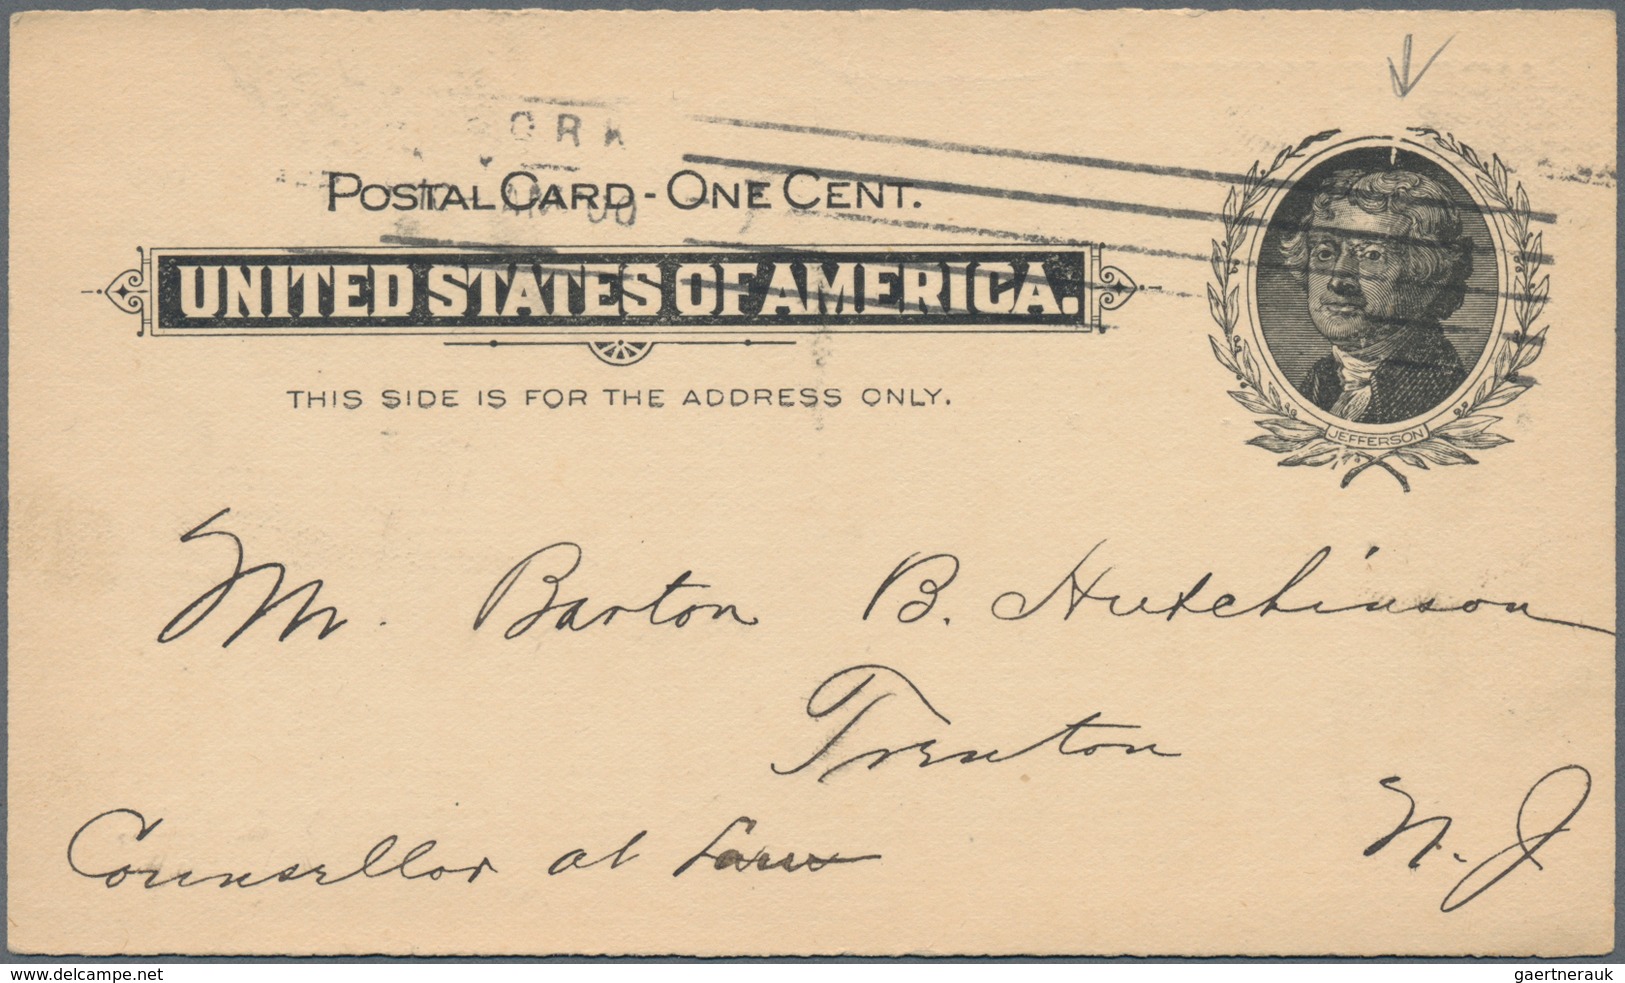 ORK
POSTAL CARD - ONE CENT.
UNITED STATES OF AMERICA.
THIS SIDE IS FOR THE ADDRESS ONLY.
JEFFERSON
Mr. Barton B. Hutchinson
Trenton
N. J.
Counsellor at Law
www.delcampe.net
gaertnerauk